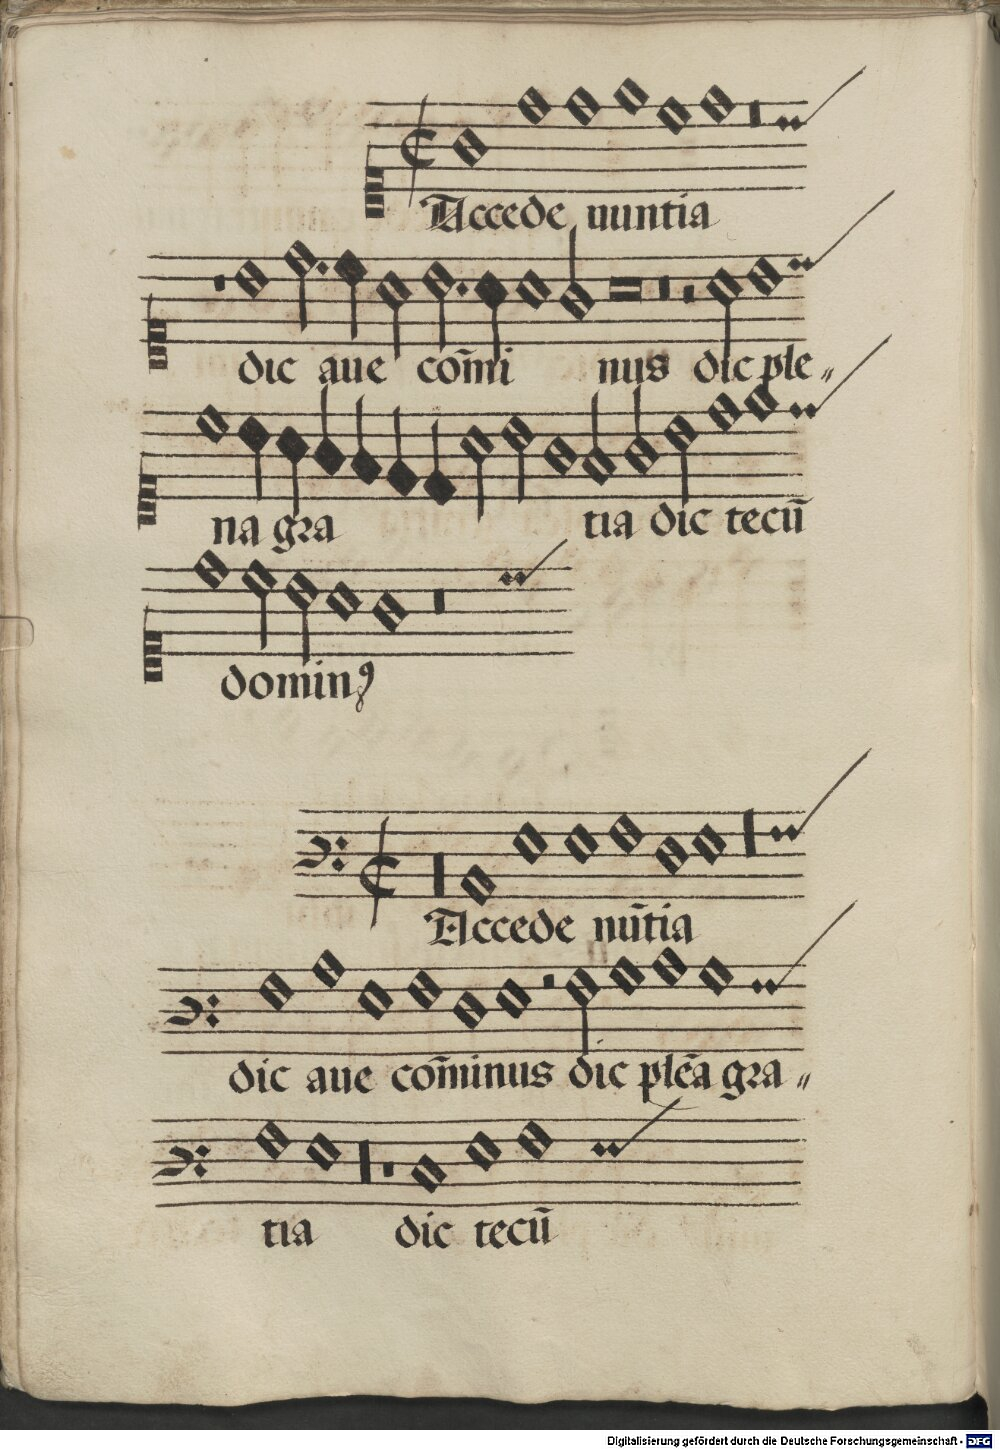 Accede nuntia
dic aue com̄i nus dic ple„
na gra tia dic tecū
dominꝰ
Accede nūtia
dic aue com̄inus dic plēa gra„
tia dic tecū
Digitalisierung gefördert durch die Deutsche Forschungsgemeinschaft - DFG